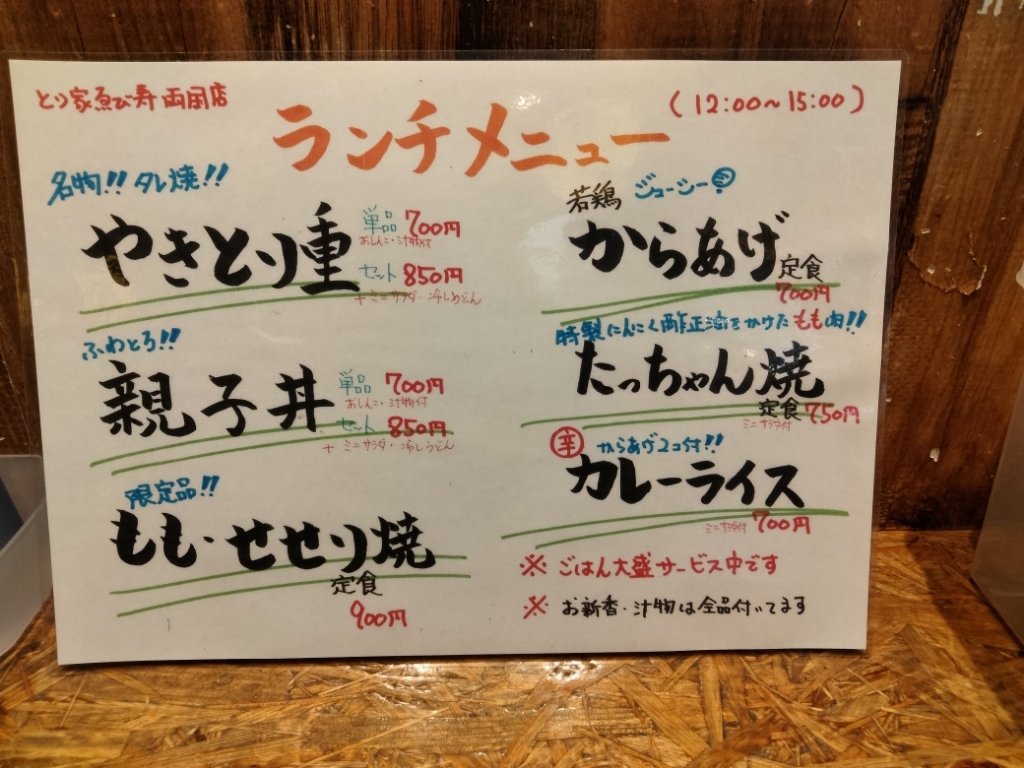 とり家ゑび寿 両国店
ランチメニュー
(12:00~15:00)
名物!! タレ焼!!
やきとり重
単品 700円
おしんこ・汁物付
セット 850円
+ミニサラダ・冷しうどん
ふわとろ!!
親子丼
単品 700円
おしんこ・汁物付
セット 850円
+ミニサラダ・冷しうどん
限定品!!
もも・せせり焼
定食
900円
若鶏 ジューシー
からあげ
定食
700円
特製にんにく酢正油をかけたもも肉!!
たっちゃん焼
定食 750円
ミニサラダ付
辛 からあげ2コ付!!
カレーライス
ミニサラダ付 700円
※ ごはん大盛サービス中です
※ お新香・汁物は全品付いてます